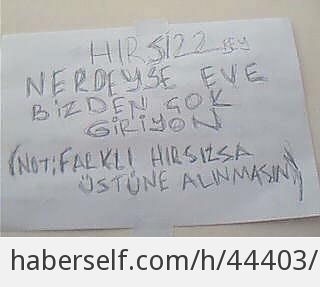 HIRSIZZ BEY
NERDEYSE EVE
BİZDEN ÇOK
GİRİYON
(NOT: FARKLI HIRSIZSA
ÜSTÜNE ALINMASIN)
haberself.com/h/44403/